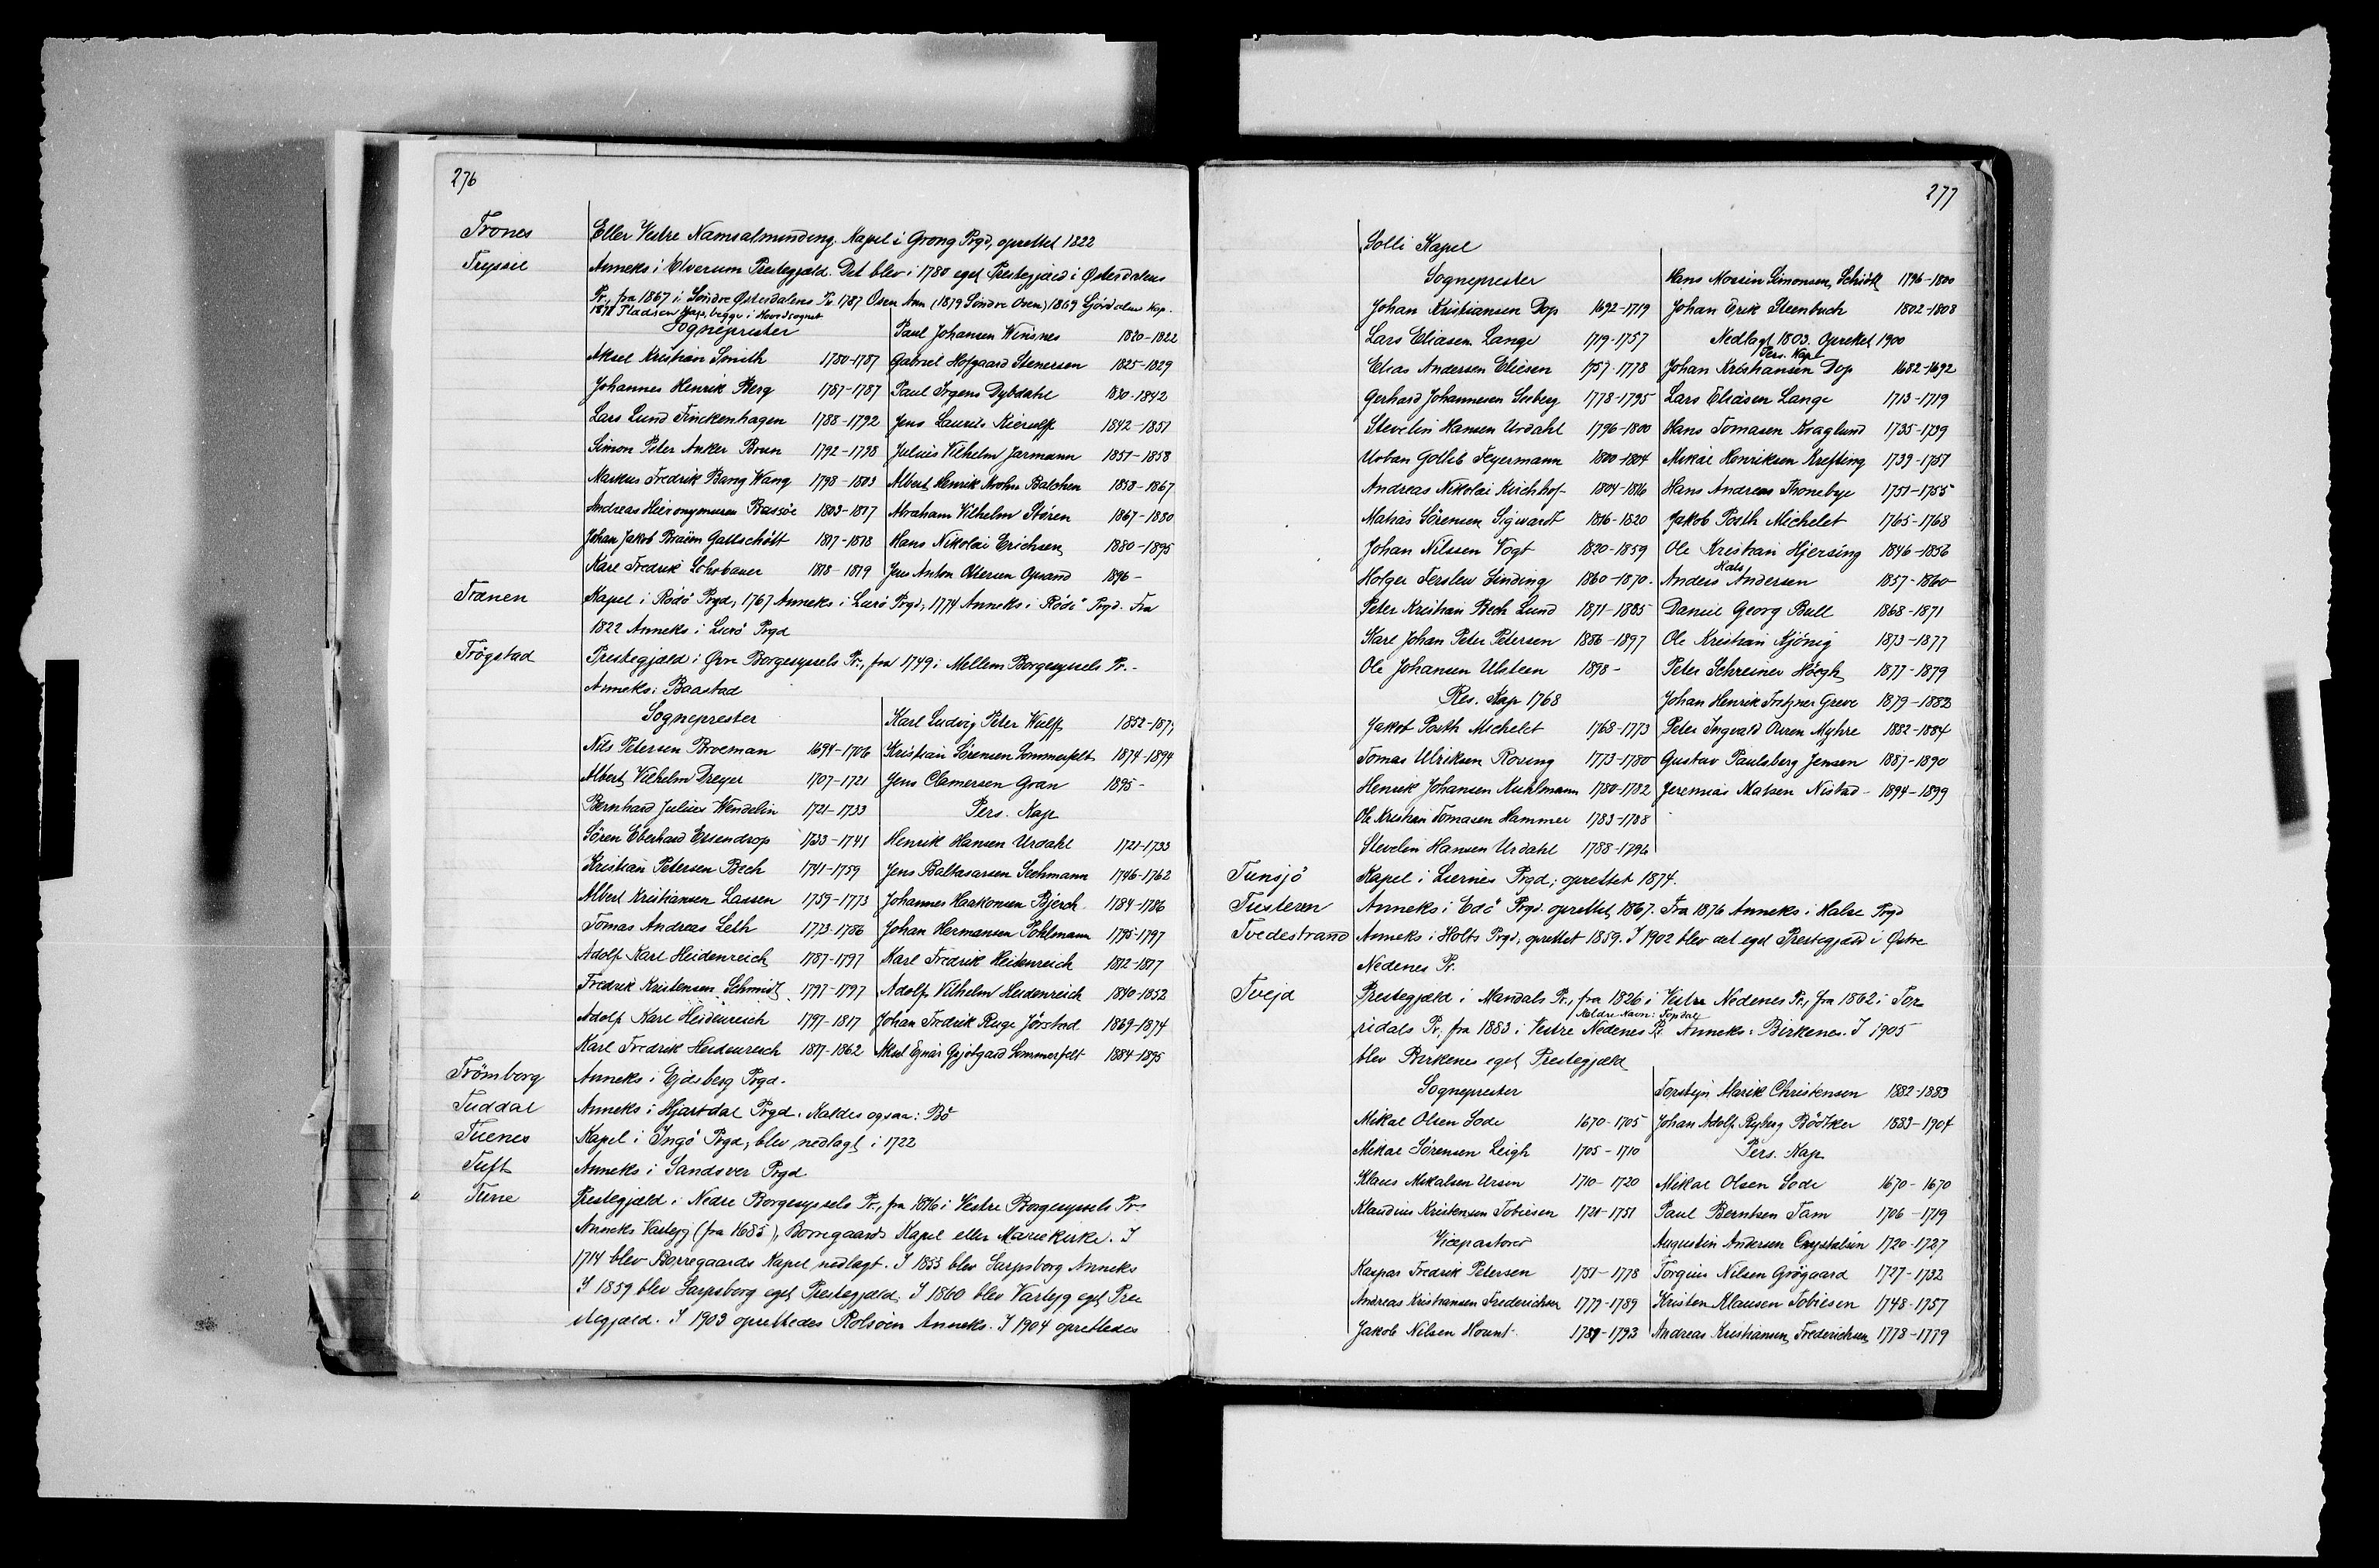 276
Trones Eller Vestre Namsalmending. Kapel i Grong Prgd, oprettet 1822
Tryssil Anneks i Elverum Prestegjæld. Det blev i 1780 eget Prestegjæld i Østerdalens
Pr., fra 1867 i Søndre Østerdalens Pr. 1787 Osen Ann (1879 Søndre Osen) 1869 Ljørdalen Kap.
1878 Pladsen Kap, begge i Hovedsognet
Sogneprester
Aksel Kristian Smith 1780-1787
Johannes Henrik Berg 1787-1787
Lars Lund Finckenhagen 1788-1792
Simon Peter Anker Brun 1792-1798
Markus Fredrik Bang Wang 1798-1803
Andreas Hieronymusen Bassøe 1803-1817
Johan Jakob Braüm Gattschött 1817-1818
Karl Fredrik Lohrbauer 1818-1819
Paul Johansen Winsnes 1820-1822
Gabriel Hofgaard Stenersen 1825-1829
Paul Irgens Dybdahl 1830-1842
Jens Laurits Kierulff 1842-1851
Julius Vilhelm Jarmann 1851-1858
Albert Henrik Krohn Balchen 1858-1867
Abraham Vilhelm Støren 1867-1880
Hans Nikolai Erichsen 1880-1895
Jens Anton Ottersen Opsand 1896-
Trænen Kapel i Rödö Prgd, 1767 Anneks i Lurö Prgd, 1774 Anneks i Rödö Prgd. Fra
1822 Anneks i Lurö Prgd
Trögstad Prestegjæld i Øvre Borgesyssels Pr., fra 1749 i Mellem Borgesyssels Pr.-
Anneks: Baastad
Sogneprester
Nils Petersen Broeman 1694-1706
Albert Vilhelm Dreyer 1707-1721
Bernhard Julius Wendelin 1721-1733
Sören Eberhard Essendrop 1733-1741
Kristian Petersen Bech 1741-1759
Albert Kristiansen Lassen 1759-1773
Tomas Andreas Leth 1773-1786
Adolf Karl Heidenreich 1787-1797
Fredrik Kristensen Schmidt 1797-1797
Adolf Karl Heidenreich 1797-1817
Karl Fredrik Heidenreich 1817-1862
Karl Ludvig Peter Wulff 1852-1874
Kristian Sörensen Sommerfelt 1874-1894
Jens Clamersen Gran 1895-
Pers. Kap
Henrik Hansen Urdahl 1721-1733
Jens Baltasarsen Sechmann 1746-1762
Johannes Haakonsen Bjerch 1784-1786
Johan Hermansen Pohlmann 1795-1797
Karl Fredrik Heidenreich 1812-1817
Adolf Vilhelm Heidenreich 1840-1852
Johan Fredrik Ruge Jörstad 1869-1874
Aksel Egnar Gejelgaard Sommerfelt 1884-1895
Trömborg Anneks i Ejdsberg Prgd.
Tuddal Anneks i Hjartdal Prgd. Kaldes ogsaa: Bö
Tuenes Kapel i Ingö Prgd, blev nedlagt i 1722
Tuft Anneks i Sandsver Prgd
Tune Prestegjæld i Nedre Borgesyssels Pr., fra 1846 i Vestre Borgesyssels Pr.
Anneks Vartejg (fra 1685), Borregaards Kapel eller Mariekirke. I
1714 blev Borregaards Kapel nedlagt. I 1853 blev Sarpsborg Anneks
I 1859 blev Sarpsborg eget Prestegjæld. I 1860 blev Vartejg eget Pre
stegjæld. I 1903 oprettedes Rolsöen Anneks. I 1904 oprettedes
277
Solli Kapel
Sogneprester
Johan Kristiansen Dop 1692-1719
Lars Eliasen Lange 1719-1757
Elias Andersen Eliesen 1757-1778
Gerhard Johannesen Seeberg 1778-1795
Stevelin Hansen Urdahl 1796-1800
Urban Gotlib Feyermann 1800-1804
Andreas Nikolai Kirchhof- 1804-1816
Matias Sörensen Sigvardt 1816-1820
Johan Nilssen Vogt 1820-1859
Holger Ferslew Sinding 1860-1870.
Peter Kristian Bech Lund 1871-1885
Karl Johan Peter Petersen 1886-1897
Ole Johansen Ulsteen 1898-
Res. Kap 1768
Jakob Porth Michelet 1768-1773
Tomas Ulriksen Roring 1773-1780
Henrik Johansen Kuhlmann 1780-1782
Ole Kristian Tomasen Hammer 1783-1788
Stevelin Hansen Urdahl 1788-1796
Hans Mossin Simonsen Schiött 1796-1800
Johan Erik Steenbuch 1802-1808
Nedlagt 1803. Oprettet 1900
Pers. Kapl
Johan Kristiansen Dop 1682-1692
Lars Eliasen Lange 1713-1719
Hans Tomasen Kraglund 1735-1739
Mikael Henriksen Krefting 1739-1751
Hans Andreas Thonebye 1751-1755
Jakob Porth Michelet 1765-1768
Ole Kristian Hjersing 1846-1856
Mats
Anders Andersen 1857-1860
Daniel Georg Bull 1868-1871
Ole Kristian Kjönig 1873-1877
Peter Schreiner Höegh 1877-1879
Johan Henrik Fritzner Greve 1879-1882
Peter Ingvald Ouren Myhre 1882-1884
Gustav Paulsberg Jensen 1887-1890
Jeremias Matsen Nistad- 1894-1899
Tunsjö Kapel i Liernes Prgd; oprettet 1874.
Tusteren Anneks i Edö Prgd. oprettet 1867. Fra 1876 Anneks i Halse Prgd
Tvedestrand Anneks i Holts Prgd, oprettet 1859. I 1902 blev det eget Prestegjæld i Østre
Nedenes Pr.
Tvejd Prestegjæld i Mandals Pr., fra 1826 i Vestre Nedenes Pr., fra 1862 i Tor
Ældre Navn: Topdal
ridals Pr. fra 1883 i Vestre Nedenes Pr. Anneks: Birkenes. I 1905
blev Birkenes eget Prestegjæld
Sogneprester
Mikal Olsen Lode 1670-1705
Mikal Sörensen Leigh 1705-1710
Klaus Mikalsen Ursin 1710-1720
Klaudius Kristensen Tobiesen 1721-1751
Vicepastorer
Kaspar Fredrik Petersen 1751-1778
Andreas Kristiansen Frederichsen 1779-1789
Jakob Nilsen Hount- 1789-1793
Torstejn Alarik Christensen 1882-1883
Johan Adolf Ryberg Bödtker 1883-1904
Pers. Kap
Mikal Olsen Lode 1670-1670
Paul Berntsen Tam 1706-1719
Augustin Andersen Crystalsin 1720-1727
Torgius Nilsen Grögaard 1727-1732
Kristen Klausen Tobiesen 1748-1757
Andreas Kristiansen Frederichsen 1778-1779